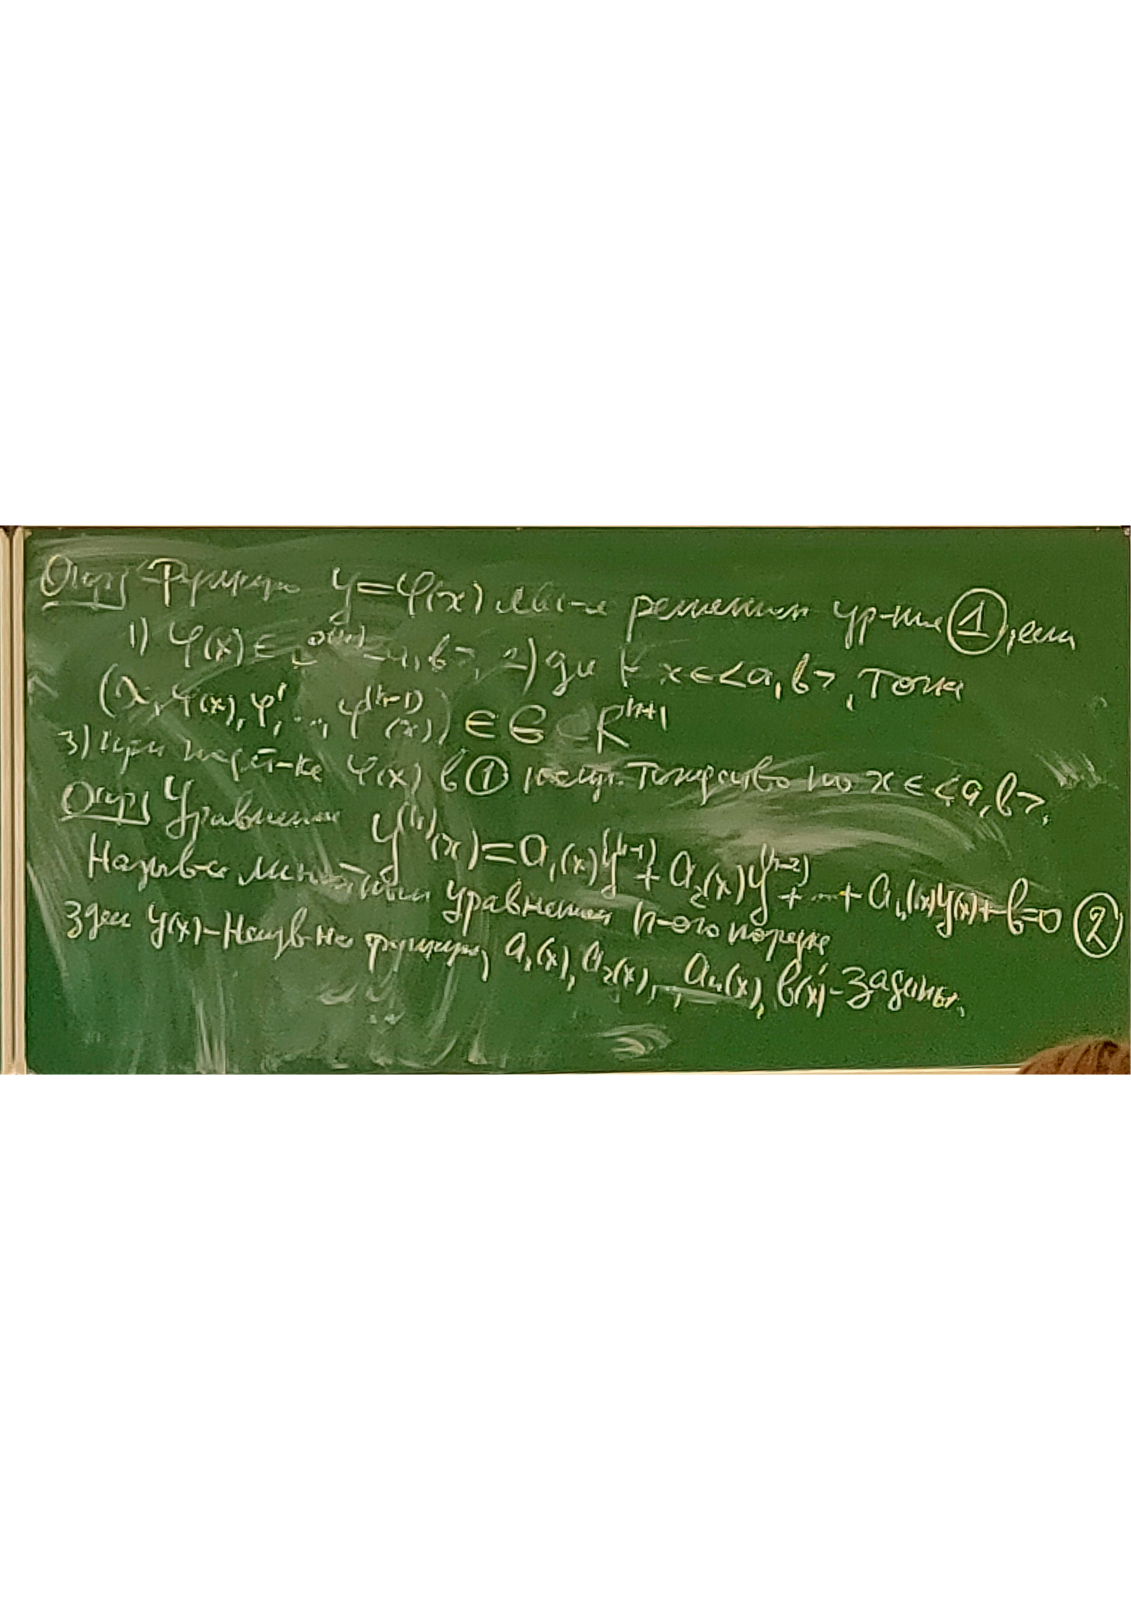 Опр] Функция y=φ(x) явл-ся решением ур-ния ①, если
1) φ(x) ∈ <a,b>, 2) для ∀ x∈<a,b>, точка
(x, φ(x), φ', ..., φ^{(n-1)}(x)) ∈ G ⊂ R^{n+1}
3) при подст-ке φ(x) в ① получ. тождество по x ∈ <a,b>.
Опр] Уравнение y^{(n)}(x)=a₁(x)y^{(n-1)}+a₂(x)y^{(n-2)}+...+aₙ(x)y(x)+b=0 ②
Назыв-ся линейным уравнением n-ого порядка
Здесь y(x)-Неизв-на функция, a₁(x), a₂(x),..., aₙ(x), b(x)-заданы.